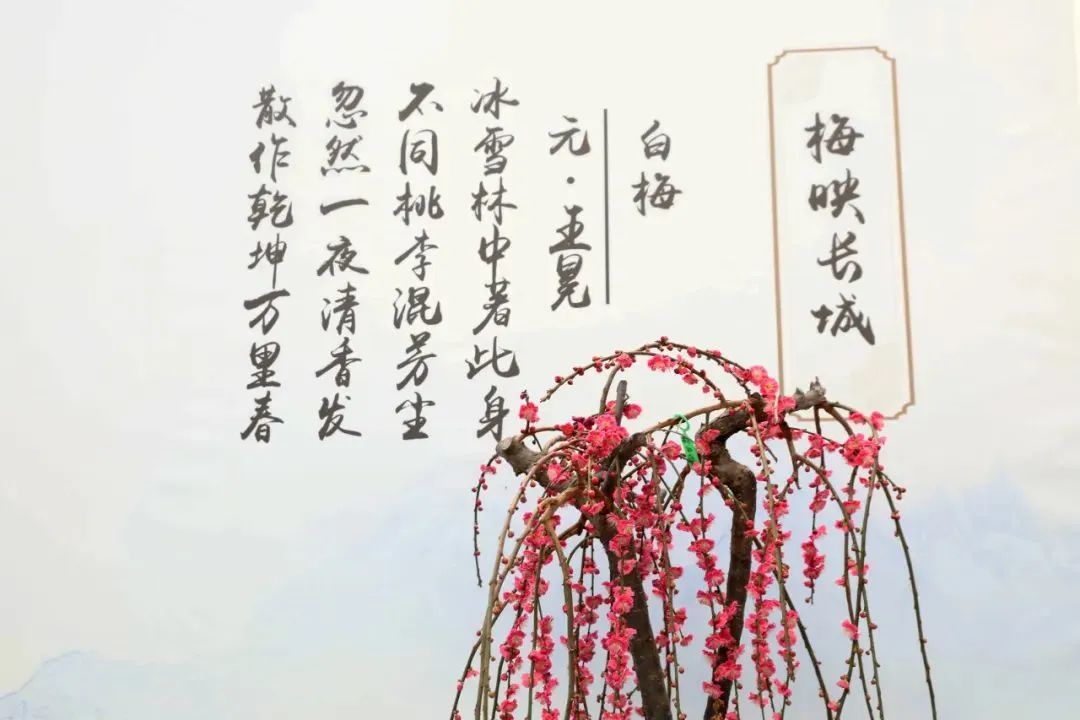 梅映长城
白梅
元·王冕
冰雪林中著此身
不同桃李混芳尘
忽然一夜清香发
散作乾坤万里春